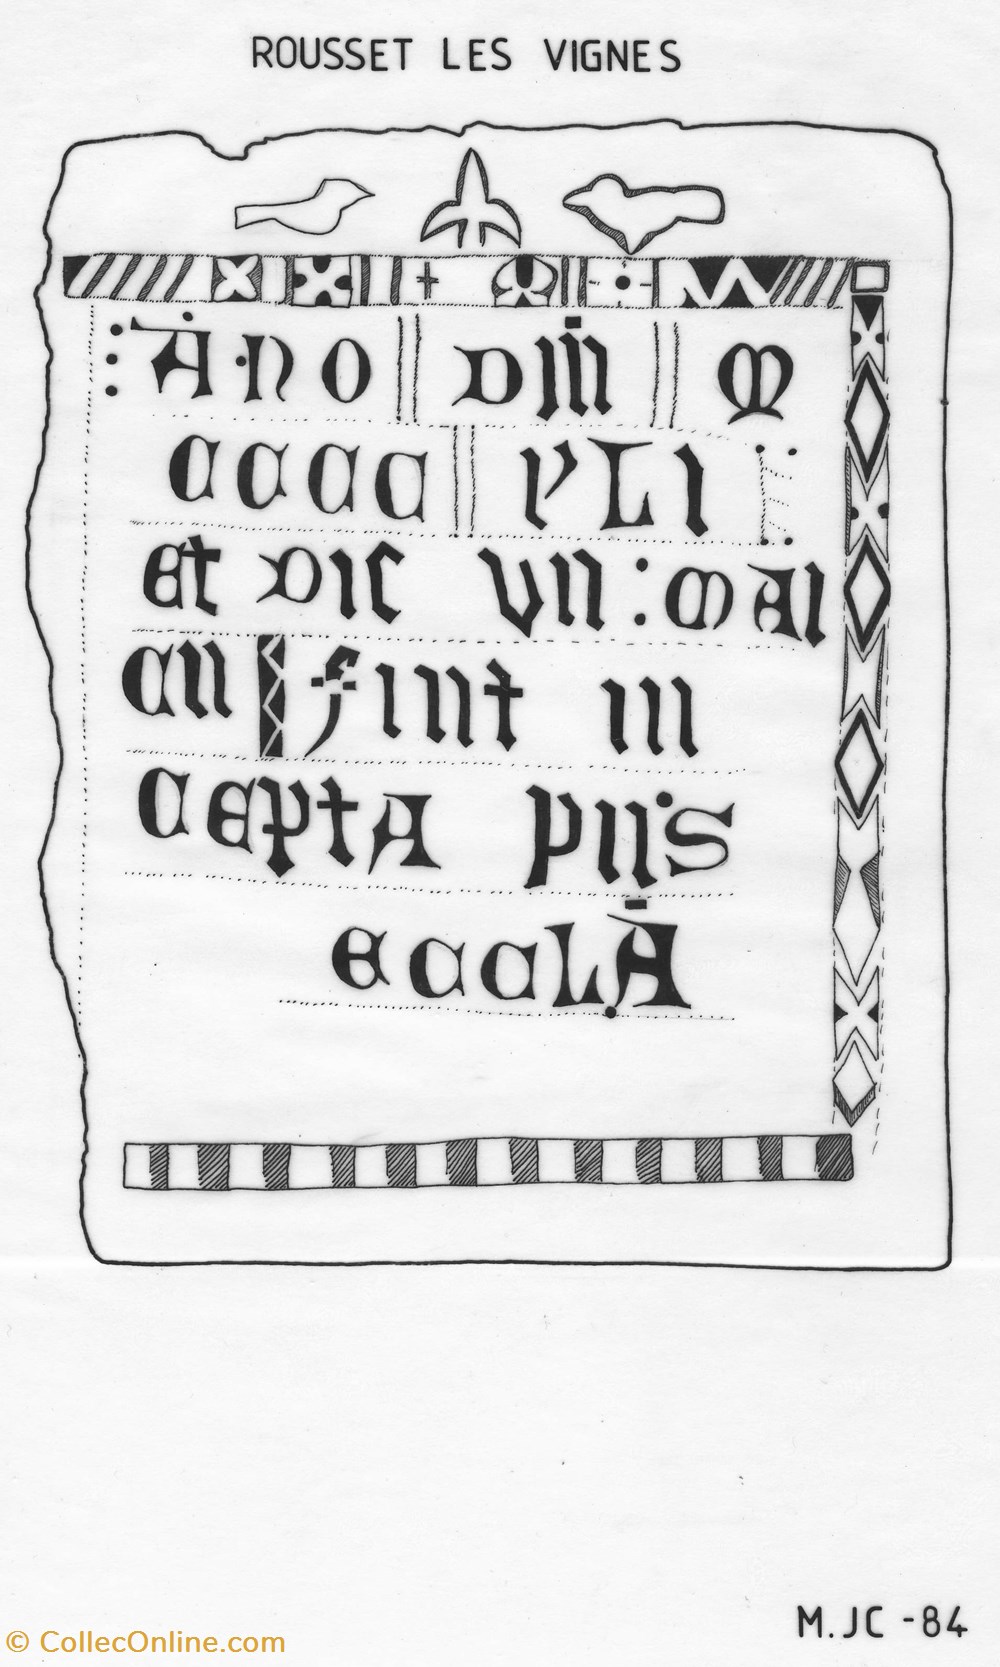 ROUSSET LES VIGNES
ANO DNI M
CCCC PLI
ET DIC VII : MAI
CII FINT IN
CEPTA PNS
ECCLA
M.JC -84
© CollecOnline.com